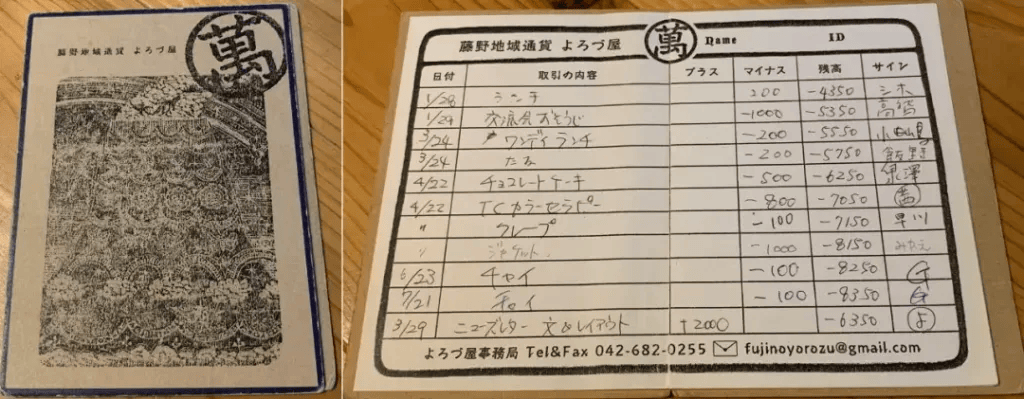 藤野地域通貨 よろづ屋
萬
藤野地域通貨 よろづ屋 萬 Name ID
日付 取引の内容 プラス マイナス 残高 サイン
1/28 ランチ 200 -4350 シホ
1/29 -1000 -5350 高橋
3/24 ワンデイランチ -200 -5550
3/24 -200 -5750 飯野
4/22 チョコレートケーキ -500 -6250 泉澤
4/22 TCカラーセラピー -800 -7050
" クレープ -100 -7150 早川
" ジャケット -1000 -8150 みたえ
6/23 チャイ -100 -8250
7/21 チャイ -100 -8350
3/29 ニューズレター 文&レイアウト +2000 -6350 よ
よろづ屋事務局 Tel&Fax 042-682-0255 fujinoyorozu@gmail.com